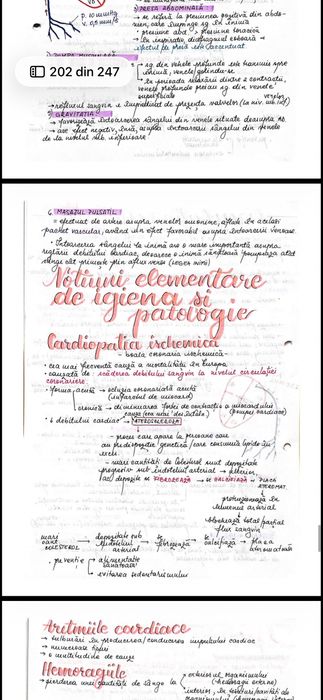 P. 10 mmHg
v. 0,5 mm/s
3) PRESA ABDOMINALĂ
→ se referă la presiunea pozitivă din abdo-
men, care împinge sg în inimă
→ presiune abd > presiune toracică
→ În inspirație, diafragmul coboară →
efectul de presă este accentuat
202 din 247
→ sg din venele profunde este
venele profunde
superficiale
→ refluxul sangvin e împiedicat de prezența valvelor (la niv. mb. inf)
GRAVITAȚIA
→ favorizează întoarcerea sângelui din venele situate deasupra AD.
→ are efect negativ, însă, asupra întoarcerii sângelui din venele
de la nivelul mb. inferioare.
6. MASAJUL PULSATIL
= efectuat de artere asupra venelor omonime, aflate în același
pachet vascular, având un efect favorabil asupra întoarcerii venoase.
• Întoarcerea sângelui la inimă are o mare importanță asupra
reglării debitului cardiac, deoarece o inimă sănătoasă pompează atât
sânge cât primește prin aflux venos (LEGEA INIMII)
Noțiuni elementare
de igienă și
patologie
Cardiopatia ischemică
- boala coronariană ischemică -
• cea mai frecventă cauză a mortalității în Europa
• cauzată de scăderea debitului sangvin la nivelul circulației
coronariene.
• forma acută → ocluzia coronariană acută
(infarctul de miocard)
cronică → diminuarea forței de contracție a miocardului
(pompei cardiace)
• ↓ debitului cardiac → ATEROSCLEROZA
- proces care apare la persoane care
au predispoziție genetică/care consumă lipide în
exces.
- mari cantități de colesterol sunt depozitate
progresiv sub endoteliul arterial → ulterior,
aceste depozite se FIBROZEAZĂ → se CALCIFICĂ → PLACA
ATEROMAT.
protruzionează în
lumenul arterial
blochează total/parțial
flux sangvin
mari
cant.
COLESTEROL → depozitate sub
endoteliul
arterial → se
fibrozează → se
calcifică → placa
ateromatoasă
• prevenție alimentație
sănătoasă
evitarea sedentarismului
Aritmiile cardiace
→ tulburări în producerea/conducerea impulsului cardiac
→ numeroase tipuri
→ o multitudine de cauze
Hemoragiile
→ pierderea unei cantități de sânge la exteriorul organismului
(hemoragii externe)
interior, în